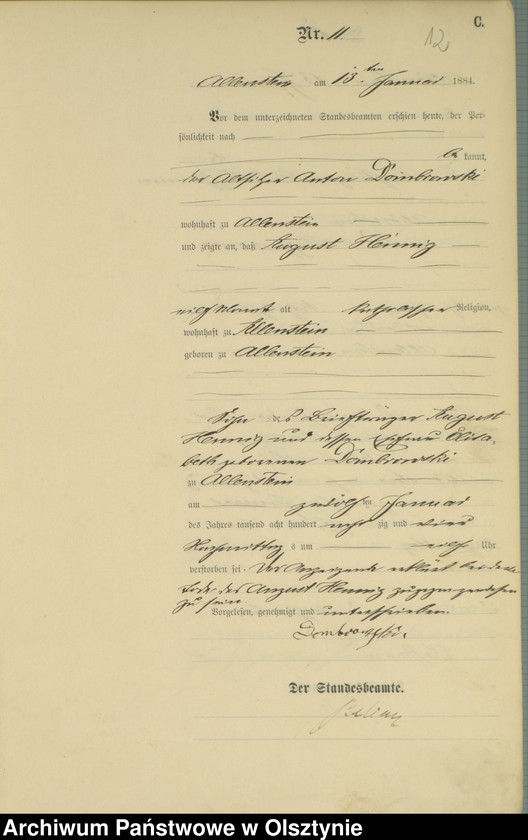 C.
Nr. 11.
12
Allenstein am 13ten Januar 1884.
Vor dem unterzeichneten Standesbeamten erschien heute, der Per-
sönlichkeit nach
be kannt,
der Altsitzer Anton Dombrowski
wohnhaft zu Allenstein
und zeigte an, daß August Hennig
elf Monat alt katholischer Religion,
wohnhaft zu Allenstein
geboren zu Allenstein
Sohn des Briefträger August
Hennig und dessen Ehefrau Elisa-
beth geborenen Dombrowski
zu Allenstein
am zwölften Januar
des Jahres tausend acht hundert acht zig und vier
Nachmittags um elf Uhr
verstorben sei. Der Anzeigende erklärt bei dem
Tode des August Hennig zugegen gewesen
zu sein
Vorgelesen, genehmigt und unterschrieben.
Dombrowski.
Der Standesbeamte.
Archiwum Państwowe w Olsztynie